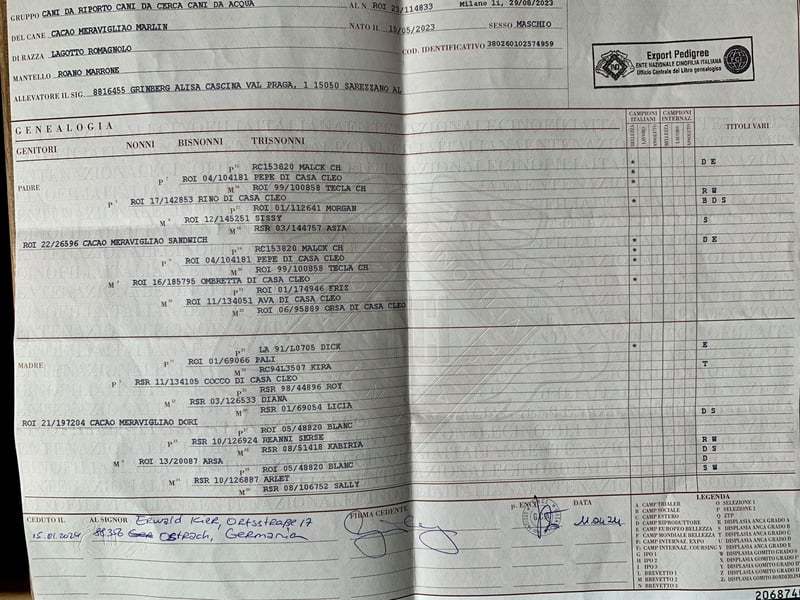 GRUPPO CANI DA RIPORTO CANI DA CERCA CANI DA ACQUA AL N. ROI 23/114833 Milano li, 29/08/2023
DEL CANE CACAO MERAVIGLIAO MARLIN NATO IL 15/05/2023 SESSO MASCHIO
DI RAZZA LAGOTTO ROMAGNOLO COD. IDENTIFICATIVO 380260102574959
MANTELLO ROANO MARRONE
ALLEVATORE IL SIG. 8816455 GRINBERG ALISA CASCINA VAL PRAGA, 1 15050 SAREZZANO AL
Export Pedigree
ENTE NAZIONALE CINOFILIA ITALIANA
Ufficio Centrale del Libro genealogico
GENEALOGIA
CAMPIONI ITALIANI CAMPIONI INTERNAZ.
GENITORI NONNI BISNONNI TRISNONNI
BELLEZZA LAVORO ASSOLUTO BELLEZZA LAVORO ASSOLUTO TITOLI VARI
PADRE
P RC153820 MALCK CH * D E
P ROI 04/104181 PEPE DI CASA CLEO *
M ROI 99/100858 TECLA CH * R W
P ROI 17/142853 RINO DI CASA CLEO * B D S
P ROI 01/112641 MORGAN
M ROI 12/145251 SISSY S
M RSR 03/144757 ASIA
ROI 22/26596 CACAO MERAVIGLIAO SANDWICH
P RC153820 MALCK CH * D E
P ROI 04/104181 PEPE DI CASA CLEO *
M ROI 99/100858 TECLA CH *
M ROI 16/185795 OMBRETTA DI CASA CLEO *
P ROI 01/174946 FRIZ
M ROI 11/134051 AVA DI CASA CLEO
M ROI 06/95889 ORSA DI CASA CLEO
MADRE
P LA 91/L0705 DICK * E
P ROI 01/69066 PALI
M RC94L3507 KIRA T
P RSR 11/134105 COCCO DI CASA CLEO
P RSR 98/44896 ROY
M RSR 03/126533 DIANA
M RSR 01/69054 LICIA
ROI 21/197204 CACAO MERAVIGLIAO DORI D S
P ROI 05/48820 BLANC
P RSR 10/126924 REANNI SERSE R W
M RSR 08/51418 KABIRIA D S
M ROI 13/20087 ARSA D
P ROI 05/48820 BLANC S W
M RSR 10/126887 ARLET
M RSR 08/106752 SALLY
CEDUTO IL AL SIGNOR FIRMA CEDENTE DATA
15.01.2024 Erwald Kier, Ortsstraße 17
88356 Ostrach, Germania
LEGENDA
A CAMP TRIALER
B CAMP SOCIALE
C CAMP ESTERO
D CAMP RIPRODUTTORE
E CAMP EUROPEO BELLEZZA
F CAMP MONDIALE BELLEZZA
G IPO 1
H IPO 2
I IPO 3
L BREVETTO 1
M BREVETTO 2
N BREVETTO 3
O SELEZIONE 1
P SELEZIONE 2
Q ZTP
R DISPLASIA ANCA GRADO A